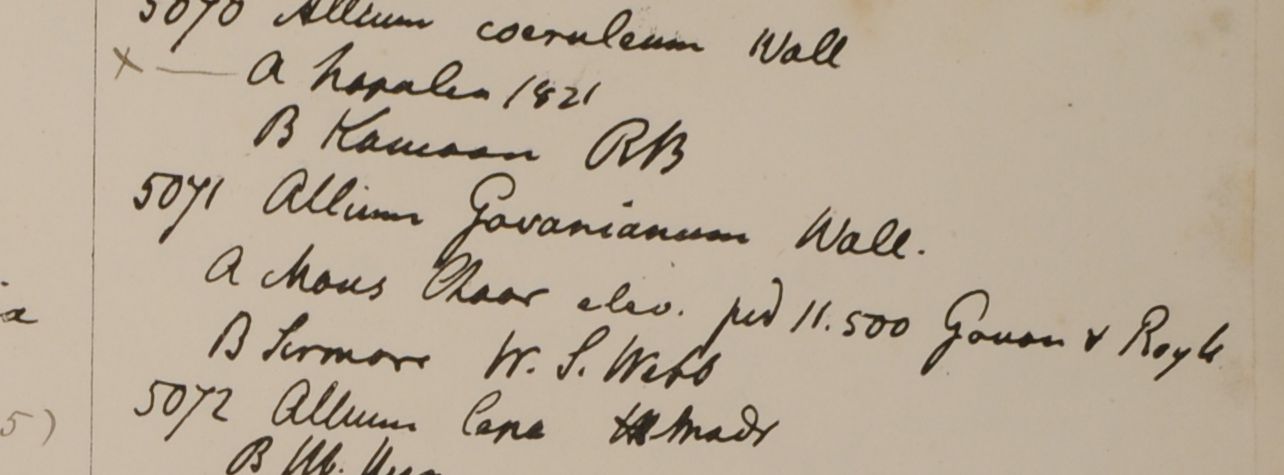 5070 Allium coeruleum Wall
x — A Napalia 1821
B Kamaon RB
5071 Allium Govanianum Wall.
A Mons Choor elev. ped 11.500 Govan & Royle
B Sirmore W. S. Webb
5072 Allium Cepa Madr
B
5)